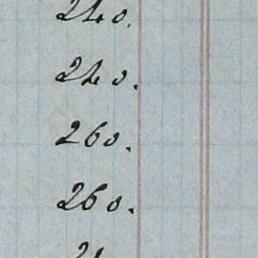 240.
240.
260.
260.